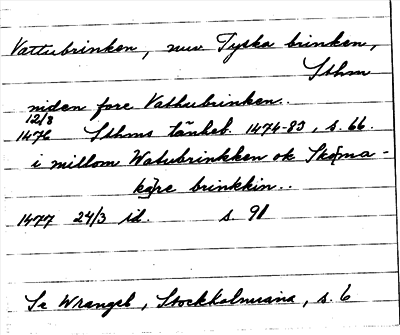 Vattubrinken, nuv Tyska brinken,
Sthm
niden fore Vathubrinken..
12/8
1476 Sthms tänkeb. 1474-83, s. 66.
i millom Watubrinkken ok Skoma-
kare brinkkin..
1477 24/3 id. s. 91
Se Wrangel, Stockholmiana, s. 6